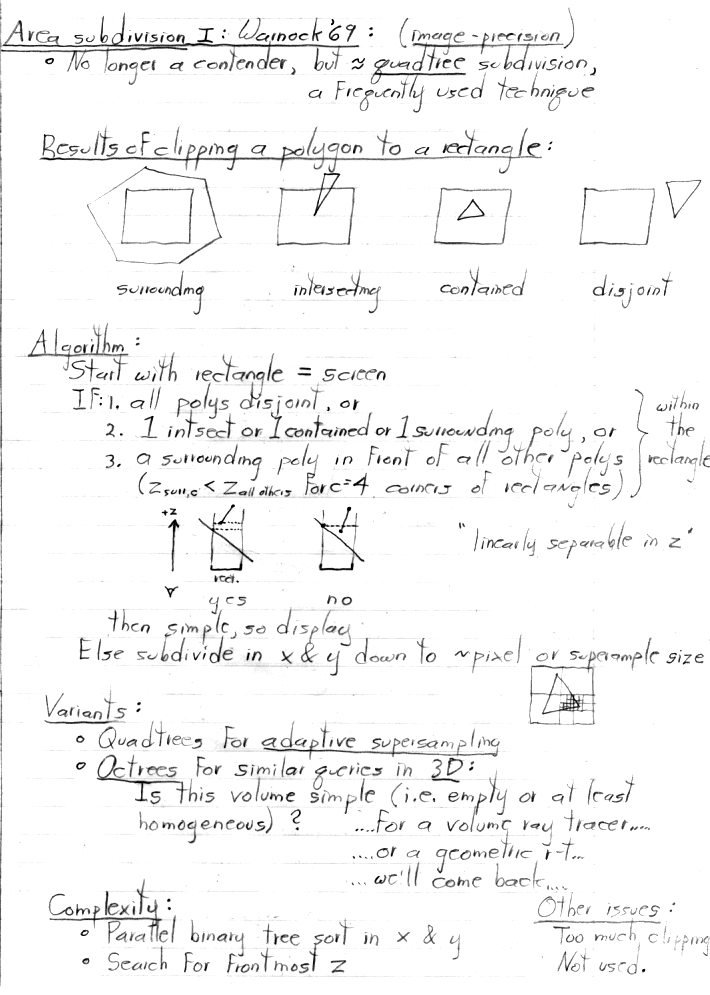 Area subdivision I: Warnock '69: (image-precision)
• No longer a contender, but ≈ quadtree subdivision,
a frequently used technique
Results of clipping a polygon to a rectangle:
surrounding intersecting contained disjoint
Algorithm:
Start with rectangle = screen
If: 1. all polys disjoint, or
2. 1 intsect or 1 contained or 1 surrounding poly, or
3. a surrounding poly in front of all other polys
(Zsurr,c < Zall others for c=4 corners of rectangles)
within
the
rectangle
+z
rect.
yes no
"linearly separable in z"
then simple, so display
Else subdivide in x & y down to ~pixel or supersample size
Variants:
• Quadtrees for adaptive supersampling
• Octrees for similar queries in 3D:
Is this volume simple (i.e. empty or at least
homogeneous) ? ....for a volume ray tracer.....
....or a geometric r-t...
... we'll come back....
Complexity:
• Parallel binary tree sort in x & y
• Search for frontmost z
Other issues:
Too much clipping
Not used.